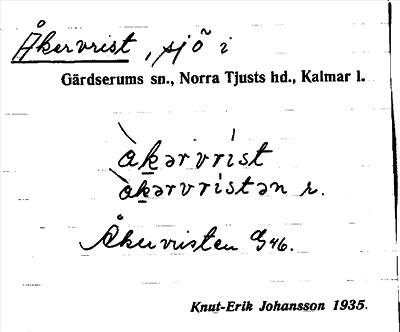 Åkervrist, sjö i
Gärdserums sn., Norra Tjusts hd., Kalmar l.
àkərvrist
àkərvristən r.
Åkervristen G 46.
Knut-Erik Johansson 1935.